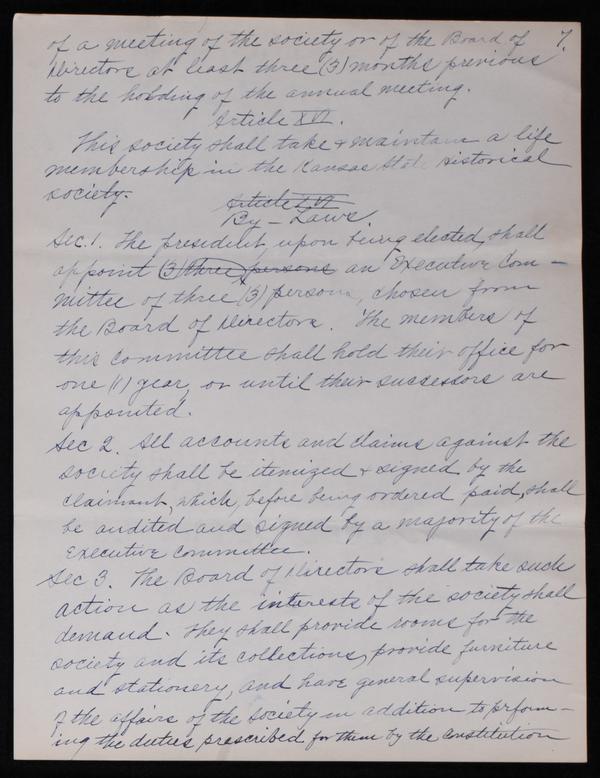 of a meeting of the society or of the Board of 7.
Directors at least three (3) months previous
to the holding of the annual meeting.
Article XVI.
This society shall take & maintain a life
membership in the Kansas State Historical
society.
Article XVI
By-Laws.
Sec. 1. The president, upon being elected, shall
appoint (3) three persons an Executive Com-
mittee of three (3) persons, chosen from
the Board of Directors. The members of
this committee shall hold their office for
one (1) year, or until their successors are
appointed.
Sec 2. All accounts and claims against the
society shall be itemized & signed by the
claimant, which, before being ordered paid, shall
be audited and signed by a majority of the
Executive committee.
Sec 3. The Board of Directors shall take such
action as the interests of the society shall
demand. They shall provide rooms for the
society and its collections, provide furniture
and stationery, and have general supervision
of the affairs of the society in addition to prform-
ing the duties prescribed for them by the constitution